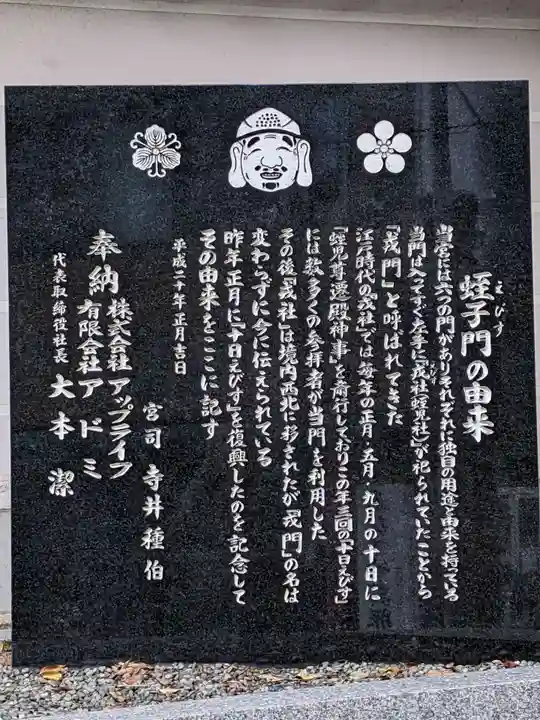 えびす
蛭子門の由来
当宮には六つの門がありそれぞれに独自の用途と由来を持っている
当門は入ってすぐ左手に『戎社(蛭児社)』が祀られていたことから
『戎門』と呼ばれてきた
江戸時代の『戎社』では毎年の正月・五月・九月の十日に
『蛭児尊遷殿神事』を斎行しておりこの年三回の『十日えびす』
には数多くの参拝者が当門を利用した
その後『戎社』は境内西北に移されたが『戎門』の名は
変わらずに今に伝えられている
昨年正月に『十日えびす』を復興したのを記念して
その由来をここに記す
平成二十年正月吉日
宮司 寺井種伯
奉納 株式会社 アップライフ
有限会社 アドミ
代表取締役社長 大本 潔